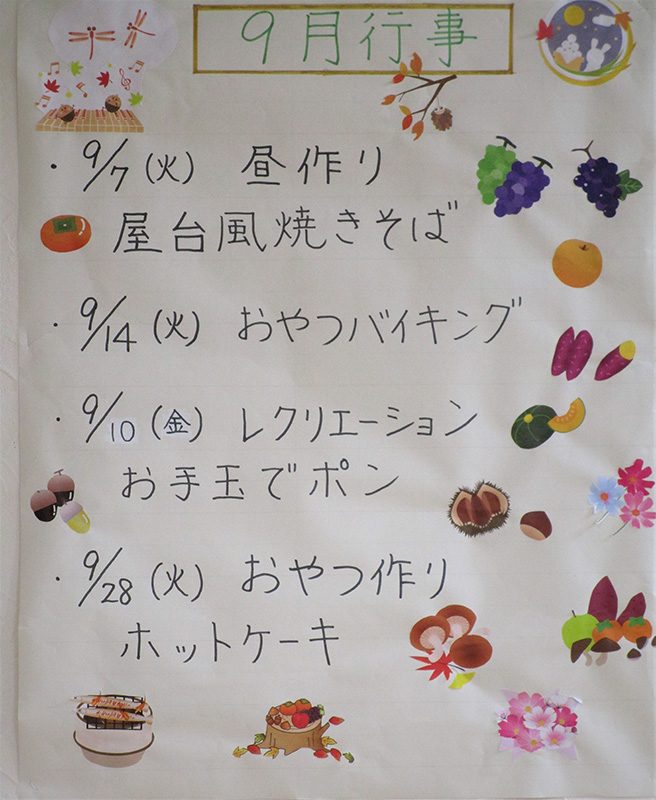 9月行事
・9/7(火) 昼作り
屋台風焼きそば
・9/14(火) おやつバイキング
・9/10(金) レクリエーション
お手玉でポン
・9/28(火) おやつ作り
ホットケーキ